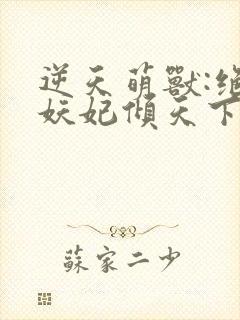 逆天萌獸:絕
妖妃傾天下
蘇家二少